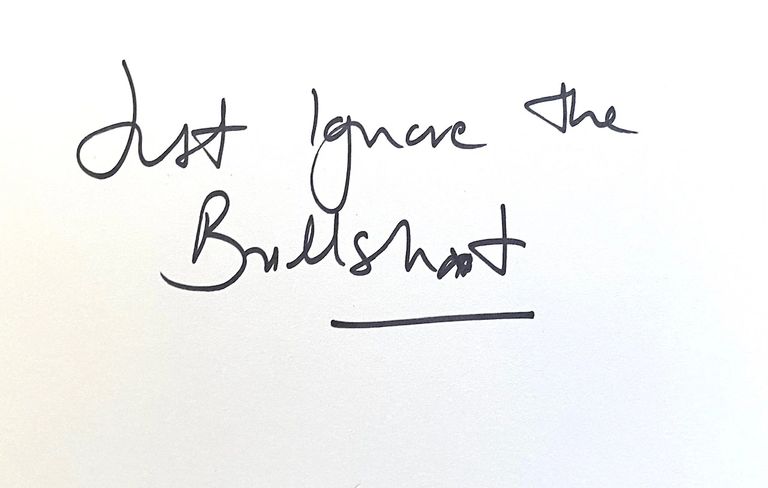 Just Ignore the
Bullshit